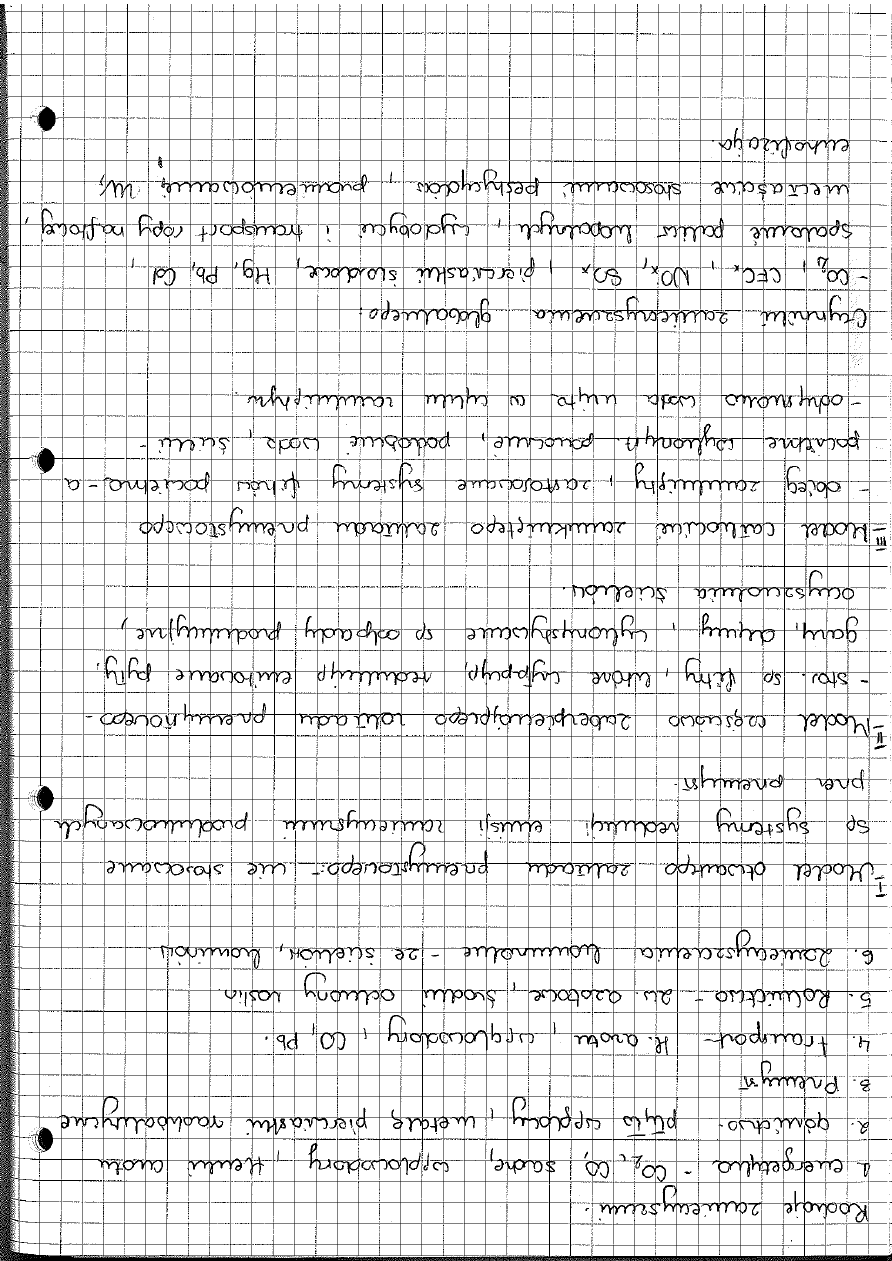 Rodzaje zanieczyszczeń:
1 energetyka - CO₂, CO, sadze, węglowodory, tlenki azotu
2. górnictwo - pył węglowy, metale, pierwiastki radioaktywne
3. Przemysł
4. transport - tl. azotu, węglowodory, CO, Pb.
5. Rolnictwo - zw. azotowe, środki ochrony roślin
6. zanieczyszczenia komunalne - ze ścieków, kominów.
I Model otwartego zakładu przemysłowego - nie stosowane
są systemy redukcji emisji zanieczyszczeń produkowanych
przez przemysł.
II Model częściowo zabezpieczającego zakładu przemysłowego -
- stos. są filtry, które wyłapują, redukują emitowane pyły,
gazy, dymy, wykorzystywane są odpady produkcyjne,
oczyszczalnia ścieków.
III Model całkowicie zamkniętego zakładu przemysłowego
- obieg zamknięty, zastosowane systemy filtrów powietrza - a
powietrze wykorz. ponownie, podobnie woda, ścieki -
- odzyskana woda użyta w cyklu zamkniętym.
Czynniki zanieczyszczenia globalnego:
- CO₂, CFCx, NOx, SOx, pierwiastki śladowe, Hg, Pb, Cd,
spalanie paliw kopalnych, wydobycie i transport ropy naftowej,
niewłaściwe stosowanie pestycydów, promieniowanie UV,
eutrofizacja.